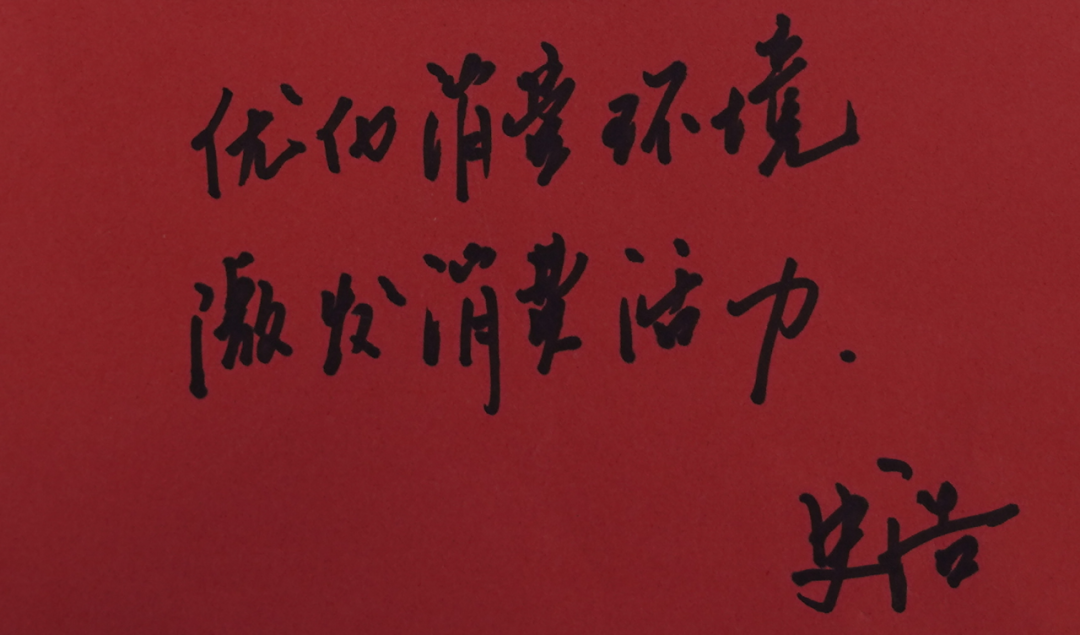 优化消费环境
激发消费活力.
史浩